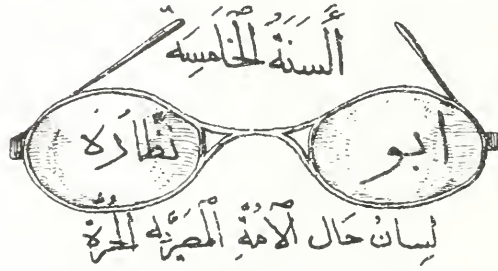 ألسنة الخامسة
ابو نظاره
لسان حال الأمة المصرية الحرة